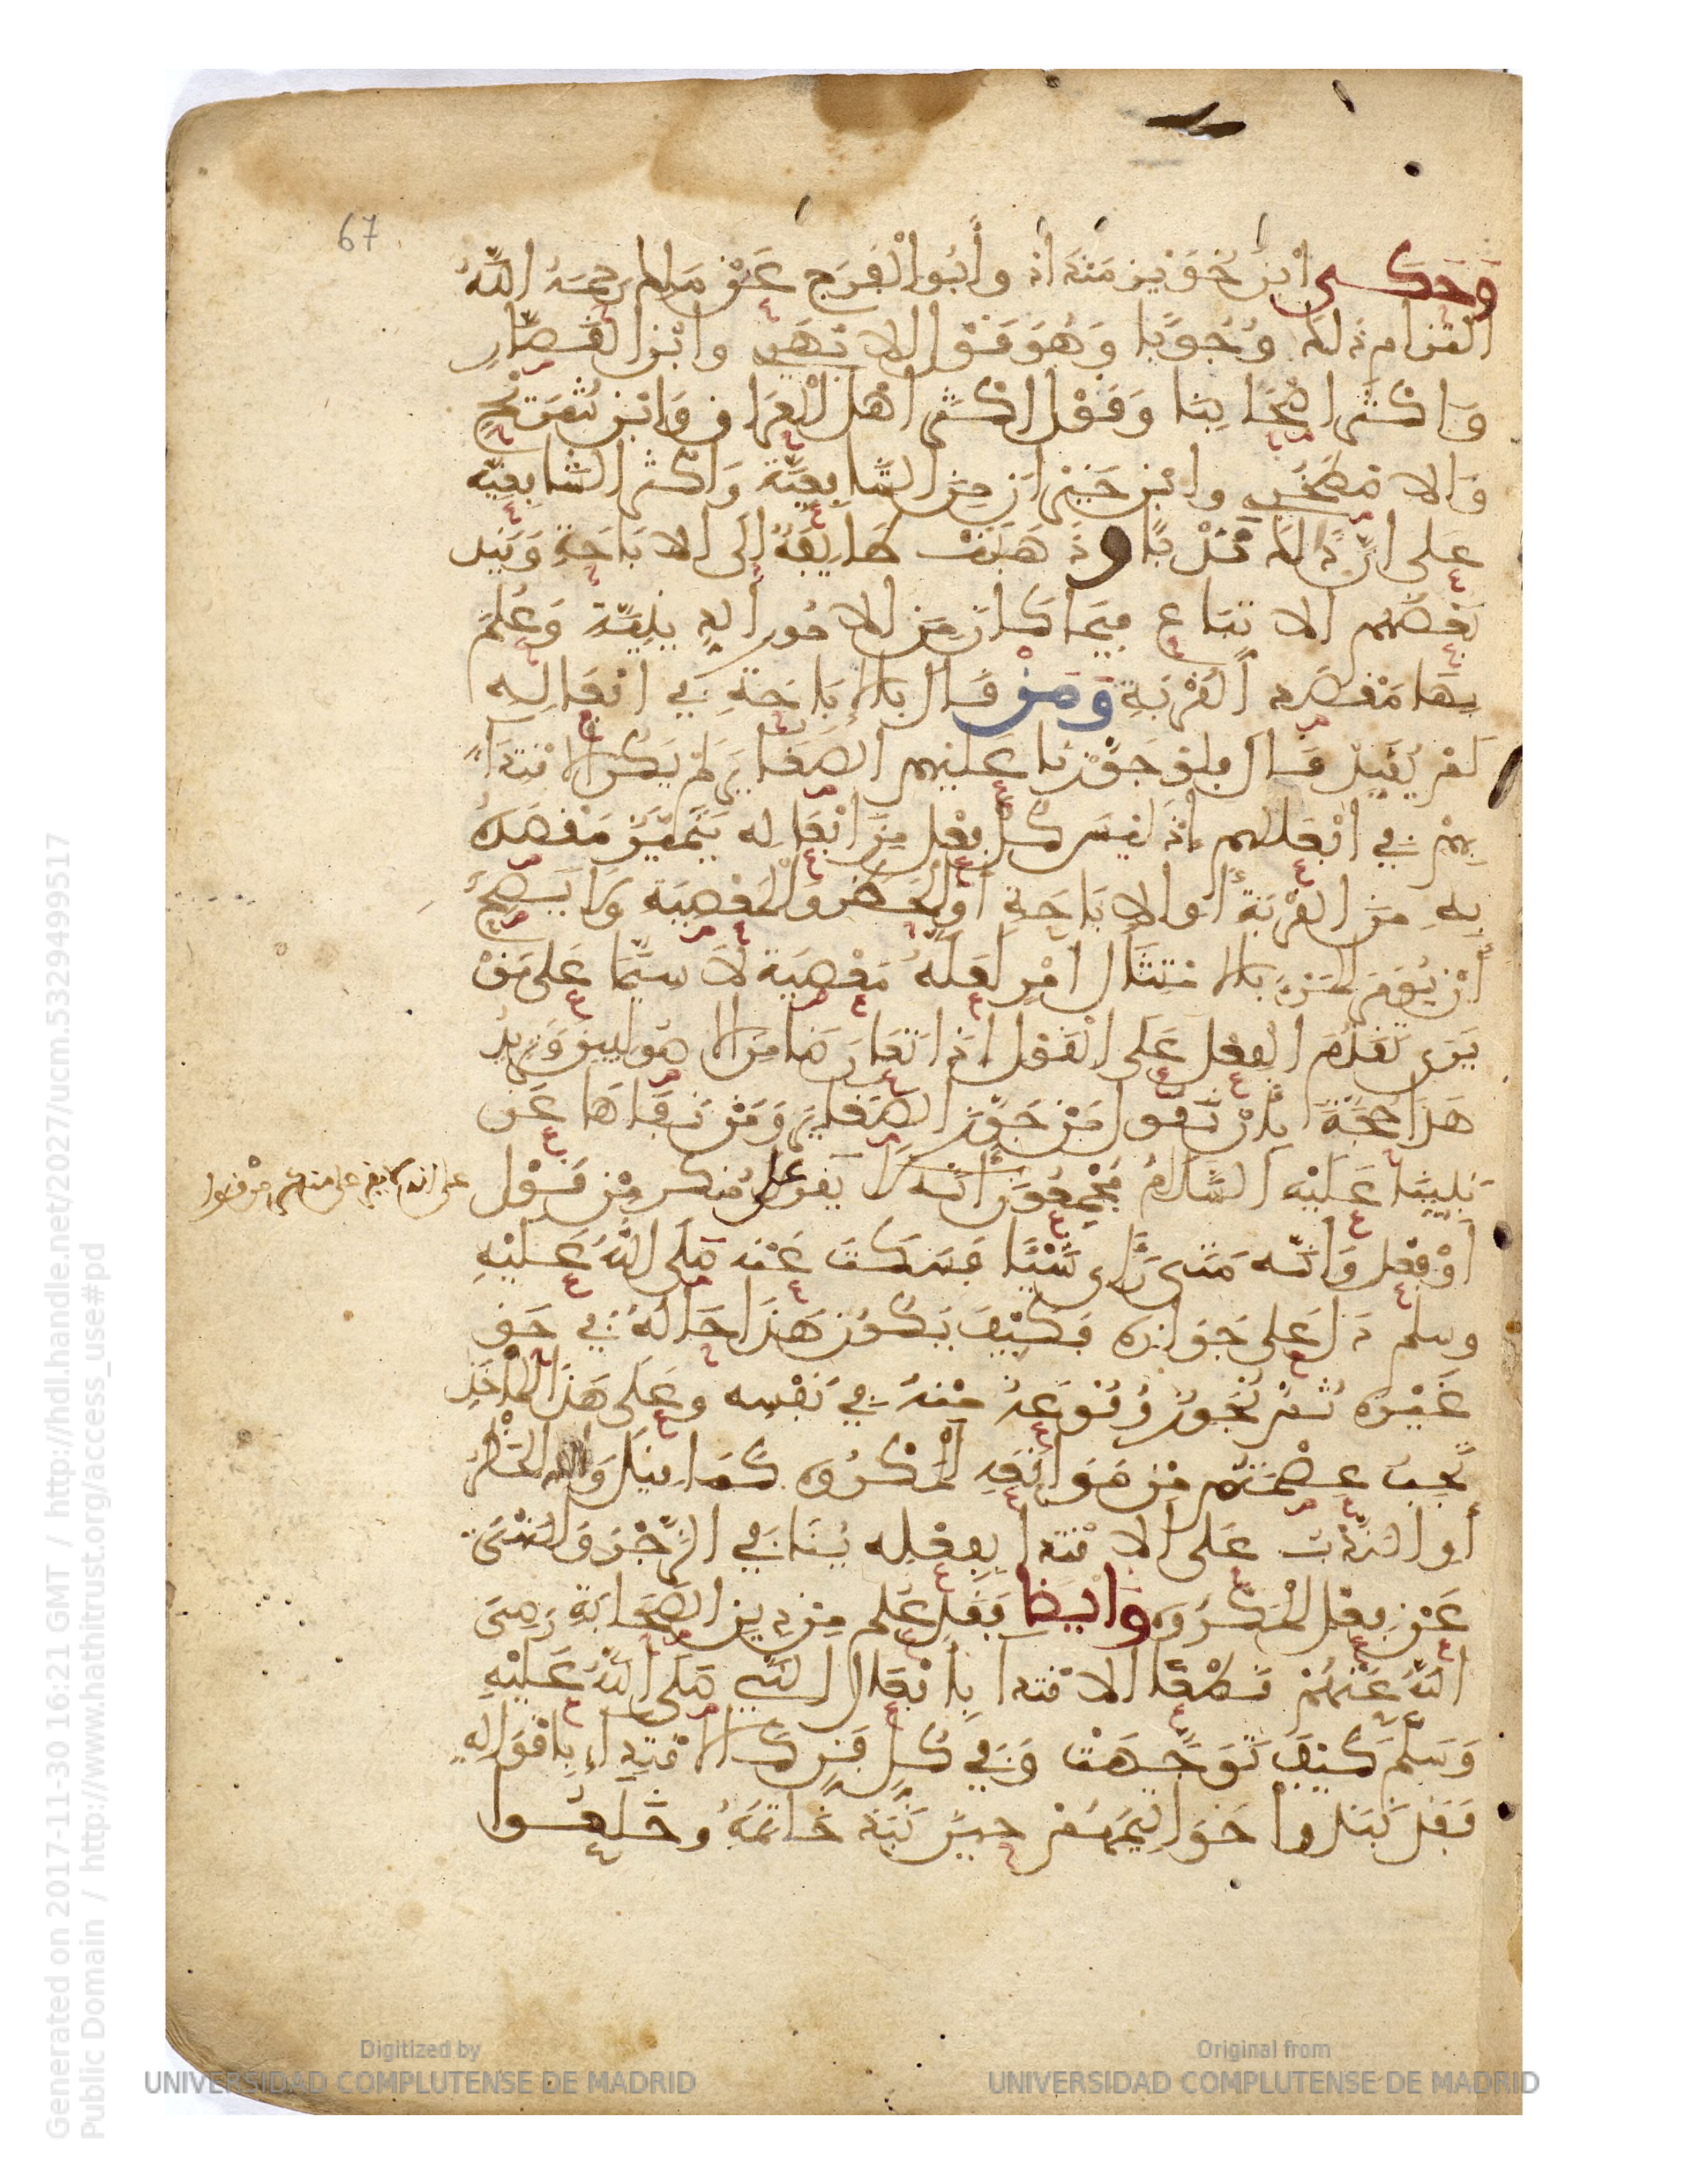 67
وَحَكَى ابْنُ خُوَيْزِ مَنْدَاذ وأَبُو الْفَرَجِ عَنْ مَالِكٍ رَحِمَهُ اللَّهُ
الْتِزَامَ ذَلِكَ وُجُوبًا وَهُوَ قَوْلُ الابْهَرِي وابْنِ الْقَصَّارِ
وَاكْثَرِ اصْحَابِنَا وَقَوْلُ اكْثَرِ اهْلِ الْعِرَاقِ وَابْنِ سُرَيْجٍ
وَالاصْطَخْرِي وابْنِ خَيْرَانَ مِنَ الشَّافِعِيَّةِ وَاكْثَرُ الشَّافِعِيَّة
عَلى انَّ ذَلِكَ نَدْبٌ وذَهَبَتْ طَايِفَةٌ إلَى الابَاحَةِ وَقَيَّدَ
بَعْضُهُم الاتبَاعَ فِيمَا كَانَ مِنَ الامُورِ الدِّينِيَّةِ وَعُلِمَ
بِهَا مَقْصَدُ الْقُرْبَةِ وَمَنْ قَالَ بالاِبَاحَةِ فِي افْعَالِهِ
لَمْ يُقَيِّدْ قَالَ فلَوْ جَوَّزْنَا عَلَيْهِمِ الصَّغَايِرَ لَمْ يُمْكِنِ الاقْتِدَاءُ
بِهِمْ فِي افْعَالِهِم اذْ لَيْسَ كُلُّ فِعْلٍ مِنَ افْعَالِهِ يَتَمَيَّزُ مَقْصَدُهُ
بِهِ مِنَ الْقُرْبَةِ أو الابَاحَةِ أوِ الْحَظْرِ والْمَعْصِيَةِ وَلا يَصِحُّ
أَنْ يُومَرَ الْمَرْءُ بالامْتِثَالِ امْرٍ لَعَلَّهُ مَعْصِيَةٌ لَا سِيَّمَا عَلى مَنْ
يَرَى تَقْدِيمَ الْفِعْلِ عَلَى الْقَوْلِ اذَا تَعَارَضَا مِنَ الاصُولِيينَ وَنَزِيدُ
هَذَا حُجَّةً بِأنْ نَقُولَ مَنْ جَوَّزَ الصَّغَايِرَ وَمَنْ نَفَاهَا عَنْ
نَبِيِّنَا عَلَيْهِ السَّلَامُ مُجْمِعُونَ أنَّهُ لا يُقِرُّ على مُنْكَرٍ مِنْ قَوْلٍ
على انه لا يقر على منكر من قول
أوْ فِعْلٍ وَانَّه مَتَى رَأى شَيْئًا فَسَكَتَ عَنْه صَلَى اللَّهُ عَلَيْهِ
وسلم دَلَّ عَلى جَوَازِه فَكَيْفَ يَكُونُ هَذَا حَالُهُ فِي حَقِّ
غَيْرِه ثُمَّ يَجُوزُ وُقُوعُهُ مِنْهُ فِي نَفْسِه وعَلَى هَذَا الْمَأْخَذِ
تَجِبُ عِصْمَتُهم مِن مُوَاقَعَةِ الْمَكْرُوهِ كَمَا قِيلَ وَاذِ الْحَظْرُ
أوِ النَّدْبُ عَلَى الاقْتِدَا بِفِعْلِه يُنَافِي الزَّجْرَ وَالنَّهْيَ
عَنْ فِعْلِ الْمَكْرُوهِ وَايضا فَقَدْ عُلِمَ مِن دِينِ الصَّحَابَةِ رَضِيَ
اللَّهُ عَنْهُمْ قَطْعًا الاقْتِدَا بِأفْعَالِ النَّبِي صَلَى اللَّهُ عَلَيْهِ
وَسَلَّمَ كَيْفَ تَوَجَّهَتْ وَفِي كُلِّ فَنٍّ كَالاقْتِدَاءِ بِاقْوَالِهِ
فَقَدْ نَبَذُوا خَوَاتِيمَهُمْ حِينَ نَبَذَ خَاتِمَهُ وخَلَعُوا
Generated on 2017-11-30 16:21 GMT / http://hdl.handle.net/2027/ucm.5329499517
Public Domain / http://www.hathitrust.org/access_use#pd
Digitized by
UNIVERSIDAD COMPLUTENSE DE MADRID
Original from
UNIVERSIDAD COMPLUTENSE DE MADRID